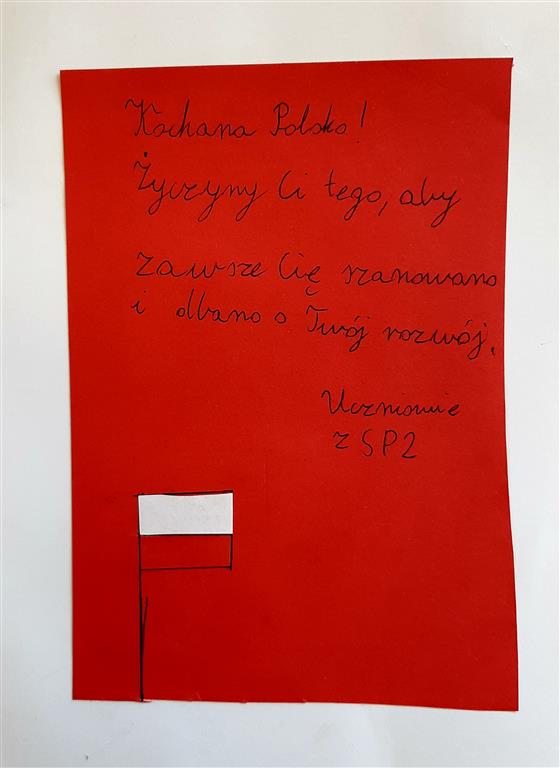 Kochana Polsko!
Życzymy Ci tego, aby
zawsze Cię szanowano
i dbano o Twój rozwój.
Uczniowie
z SP2